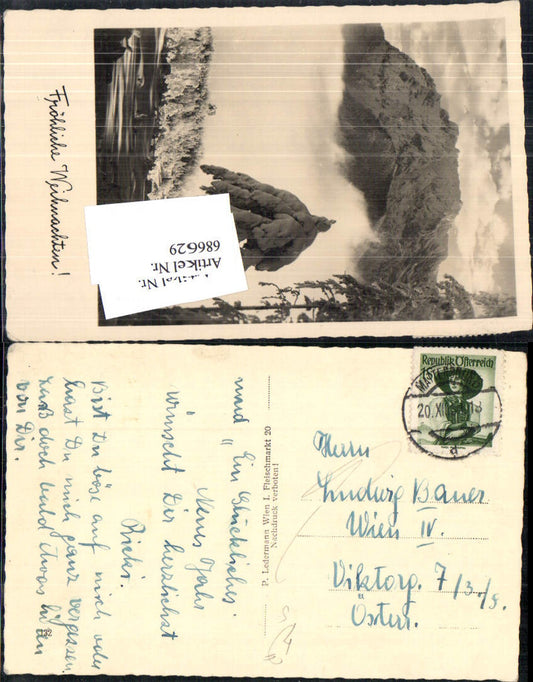 Fröhliche Weihnachten!
686629
Artikel Nr.
Artikel Nr.
und "Ein Glückliches
Neues Jahr"
wünscht Dir herzlichst
Ricki.
Bist Du böse auf mich oder
hast Du mich ganz vergessen.
Laß doch bald etwas hören
von Dir.
P. Ledermann Wien I. Fleischmarkt 20
Nachdruck verboten!
Republik Österreich
20. XII
Herrn
Ludwig Bauer
Wien IV.
Viktorg. 7/3./9.
Österr.